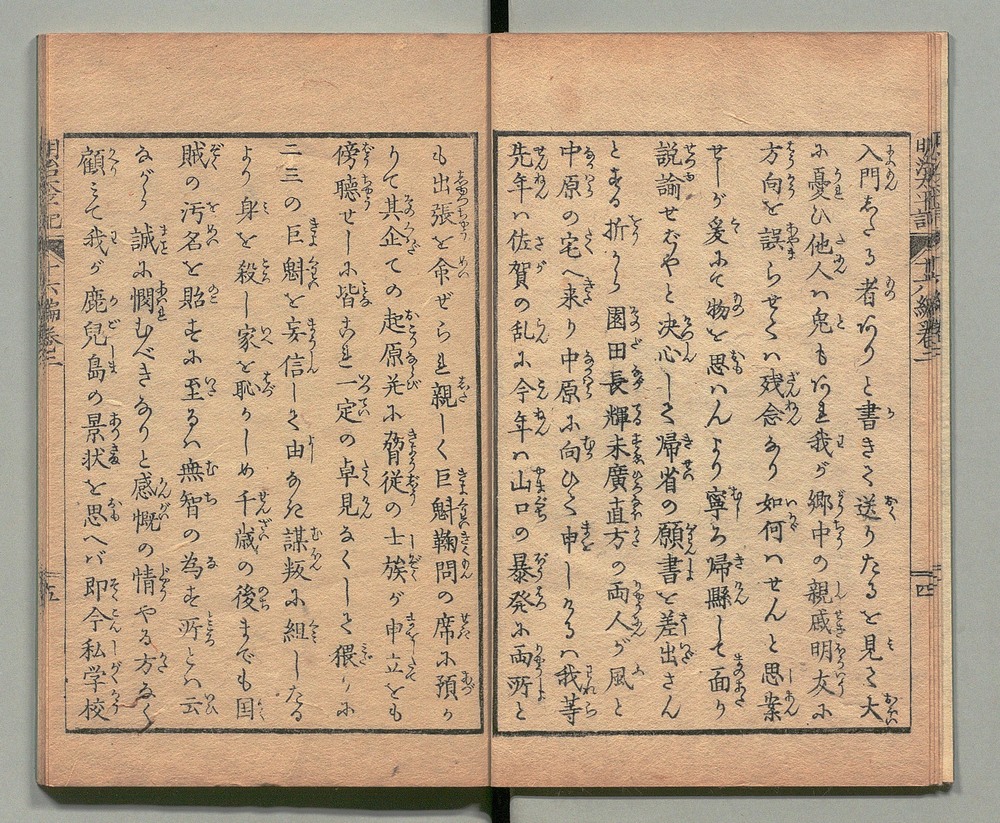 入門志たる者ありと書きて送りたるを見て大
に憂ひ他人ハ兎もあれ我が郷中の親戚朋友に
方向を誤らせてハ残念なり如何ハせんと思案
せしが爰にて物を思ハんより寧ろ帰縣して面り
説諭せむやと決心して帰省の願書を差出さん
とする折から園田長輝末廣直方の両人が風と
中原の宅へ来り中原に向ひて申しけるハ我等
先年ハ佐賀の乱に今年ハ山口の暴発に両所と
も出張を命ぜられ親しく巨魁鞠問の席に預か
りて其企ての起原并に脅従の士族が申立をも
傍聴せしに皆これ一定の卓見なくして猥りに
二三の巨魁を妄信して由なき謀叛に組したる
より身を殺し家を恥かしめ千歳の後までも国
賊の汚名を貽すに至るハ無智の為す所とハ云
ながら誠に憫むべきなりと感慨の情やる方なく
顧みて我が鹿兒島の景状を思へバ即今私学校
明治太平記
十六編巻之二
四
五